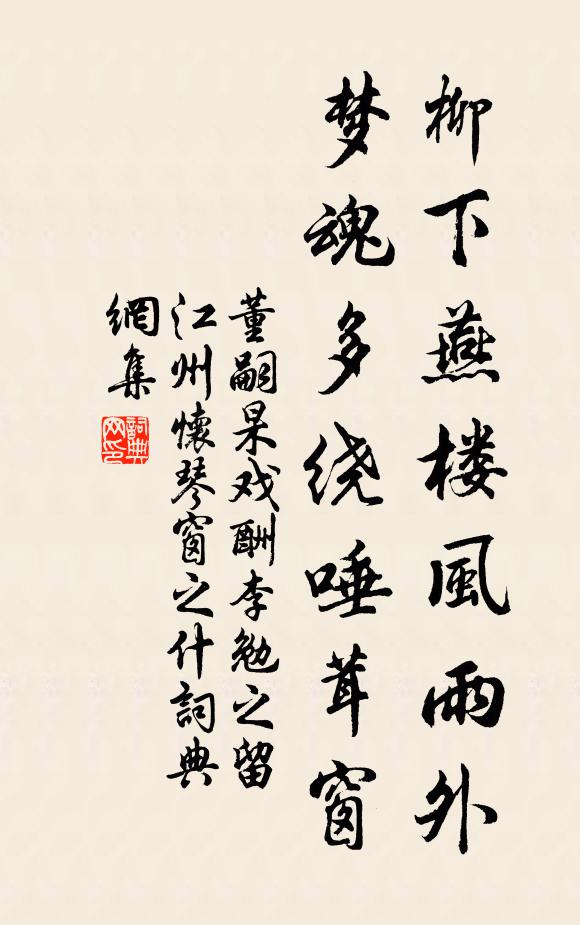 柳下燕楼風雨外
梦魂多绕唾茸窗
董嗣杲戏酬李勉之留
江州懷琴窗之什詞典
網集
詞典
网印